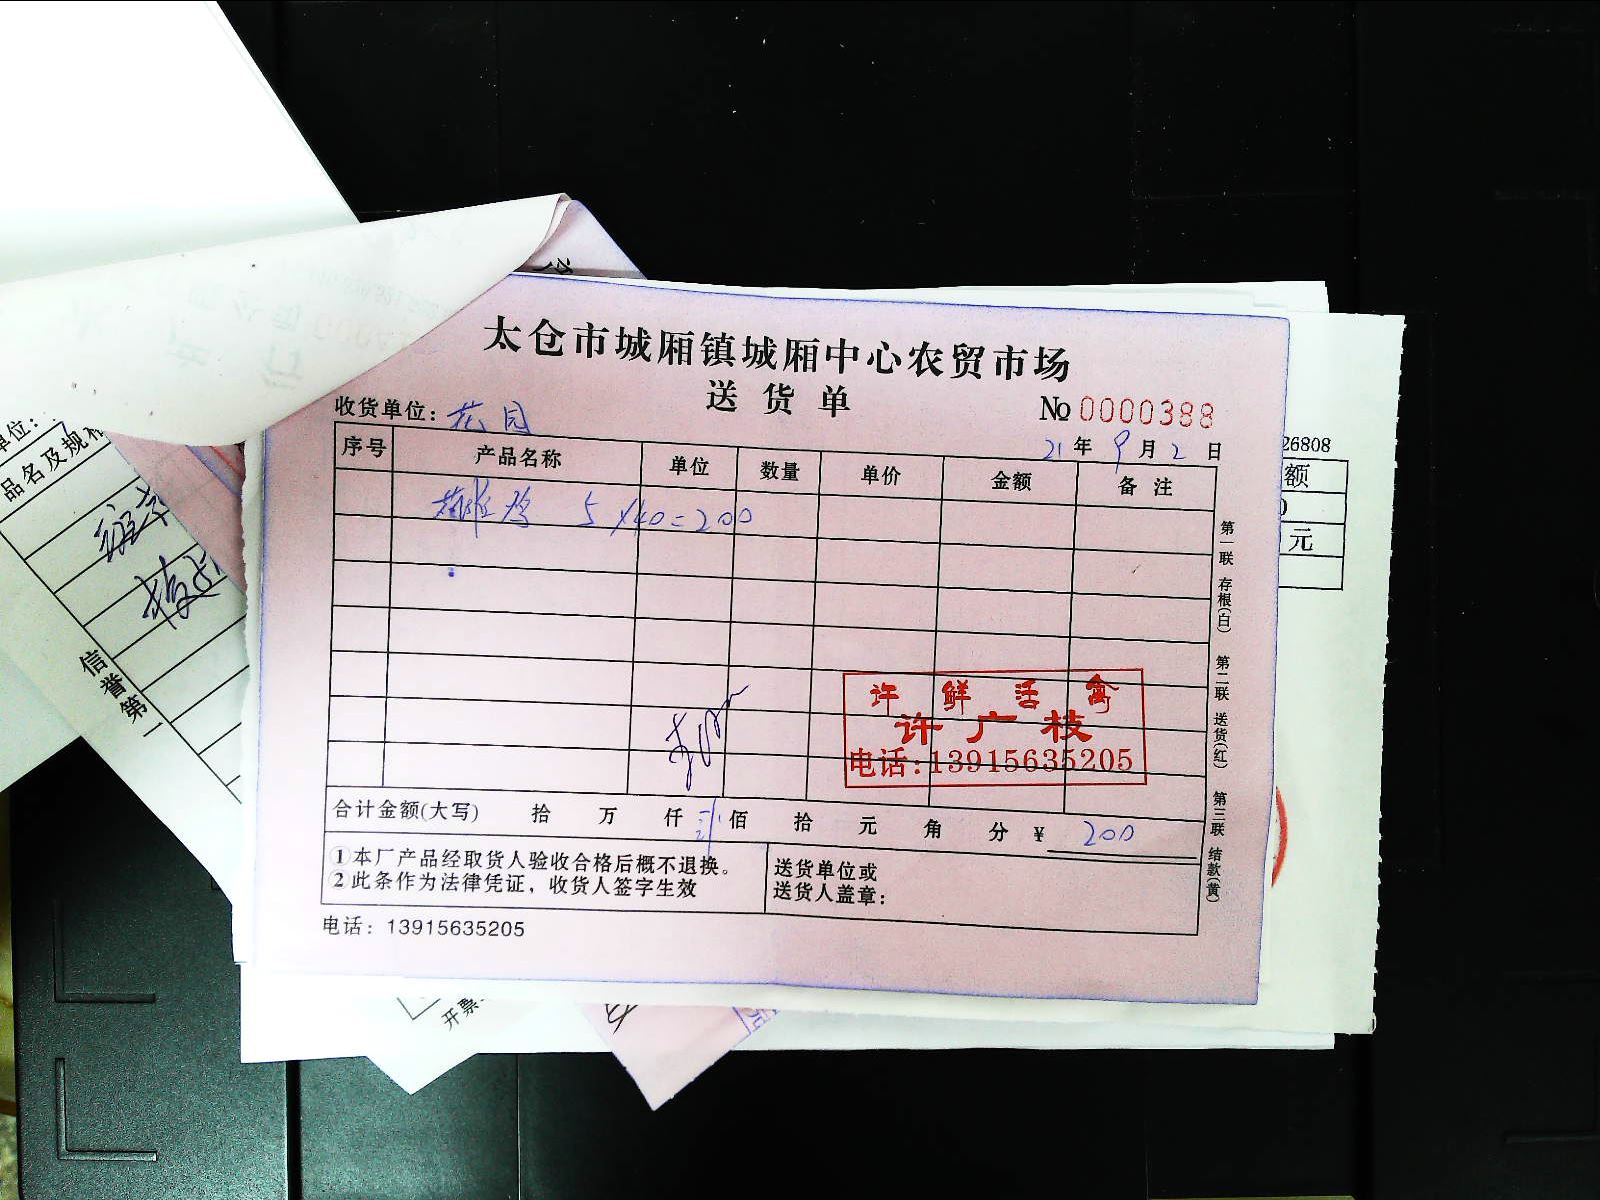 太仓市城厢镇城厢中心农贸市场
送货单
收货单位：花园
No 0000388
21年9月2日
序号 产品名称 单位 数量 单价 金额 备注
5×40=200
许 鲜 活 禽
许广枝
电话:13915635205
合计金额(大写) 拾 万 仟 贰佰 拾 元 角 分 ¥ 200
①本厂产品经取货人验收合格后概不退换。
②此条作为法律凭证，收货人签字生效
送货单位或
送货人盖章：
电话：13915635205
第一联 存根(白) 第二联 送货(红) 第三联 结款(黄)
26808
额
元
单位：
品名及规格
信誉第一
开票